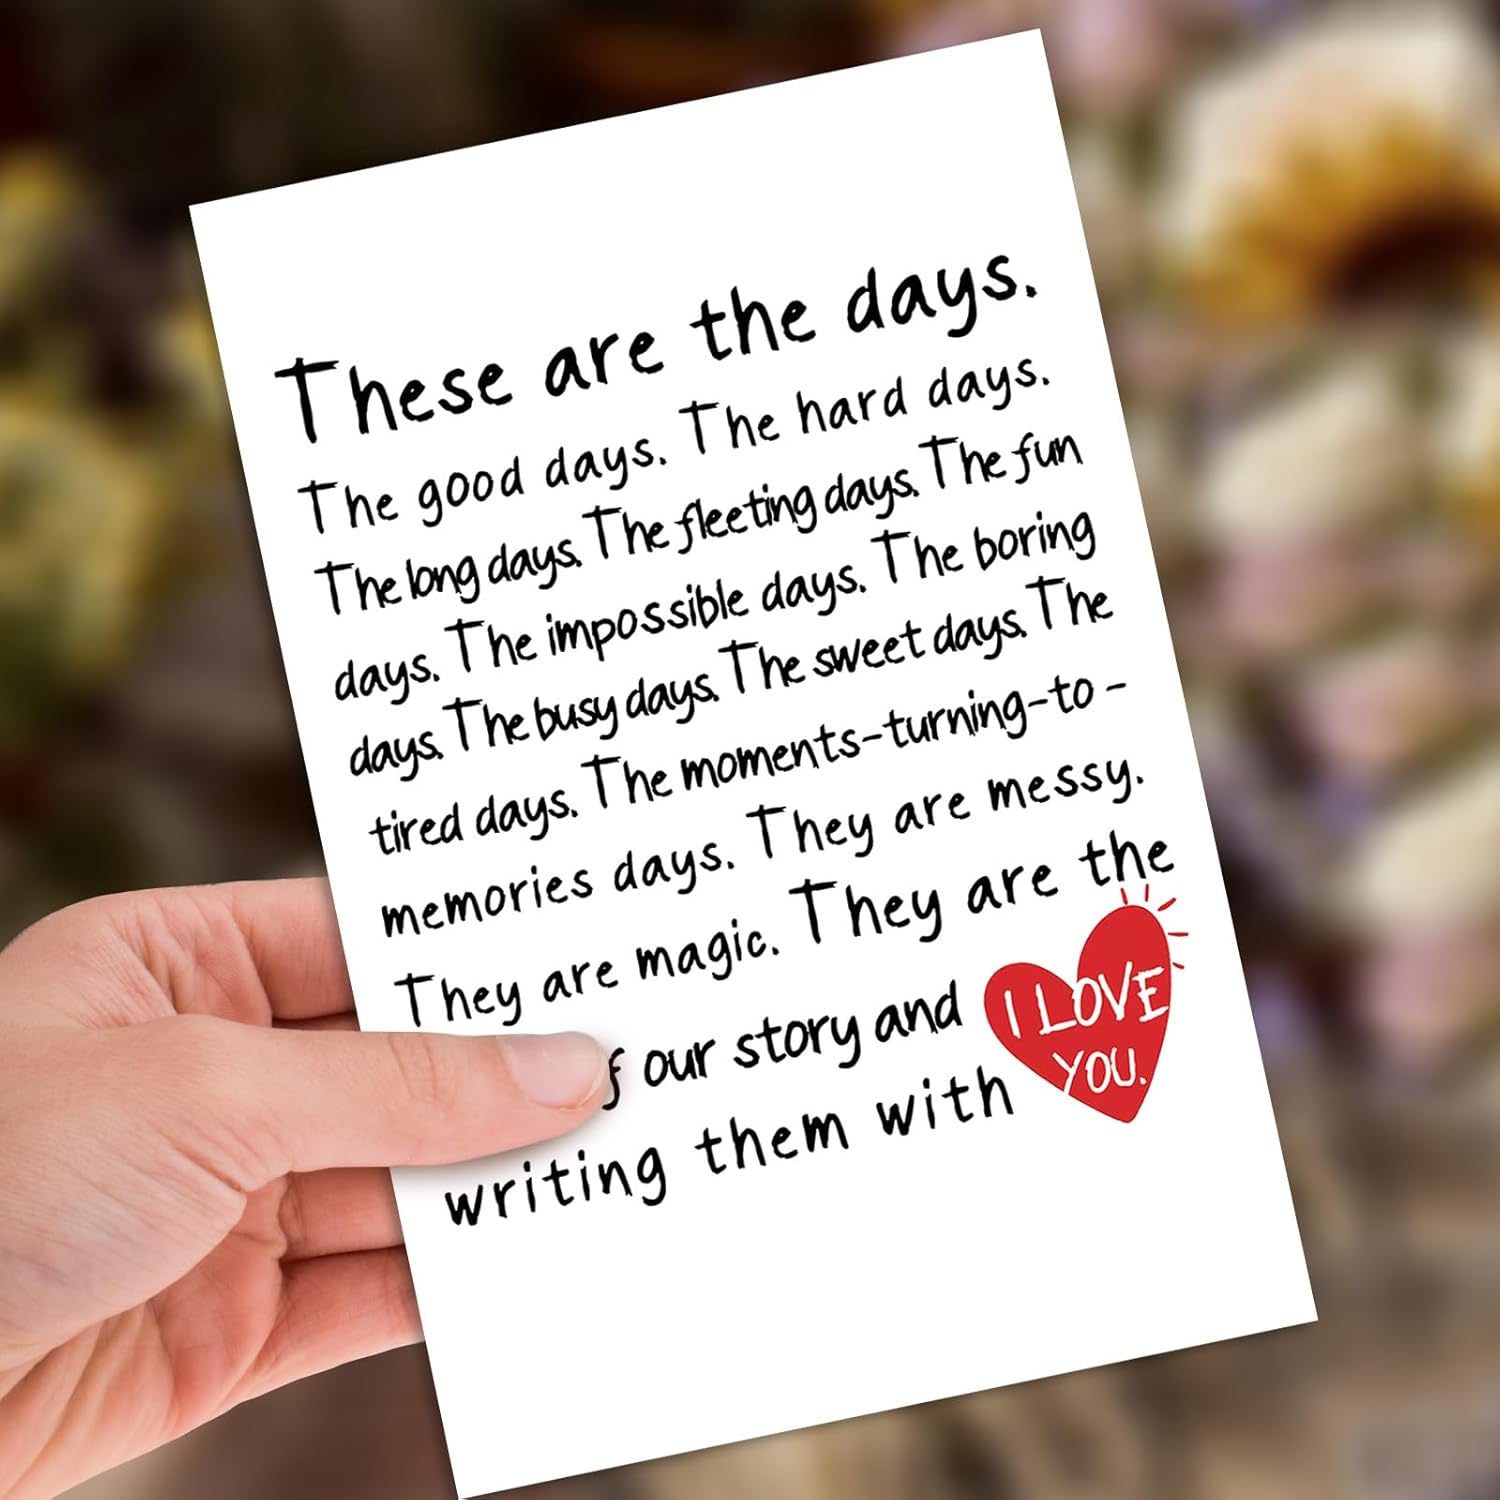 These are the days.
The good days. The hard days.
The long days. The fleeting days. The fun
days. The impossible days. The boring
days. The busy days. The sweet days. The
tired days. The moments-turning-to-
memories days. They are messy.
They are magic. They are the
our story and
writing them with
I LOVE
YOU.